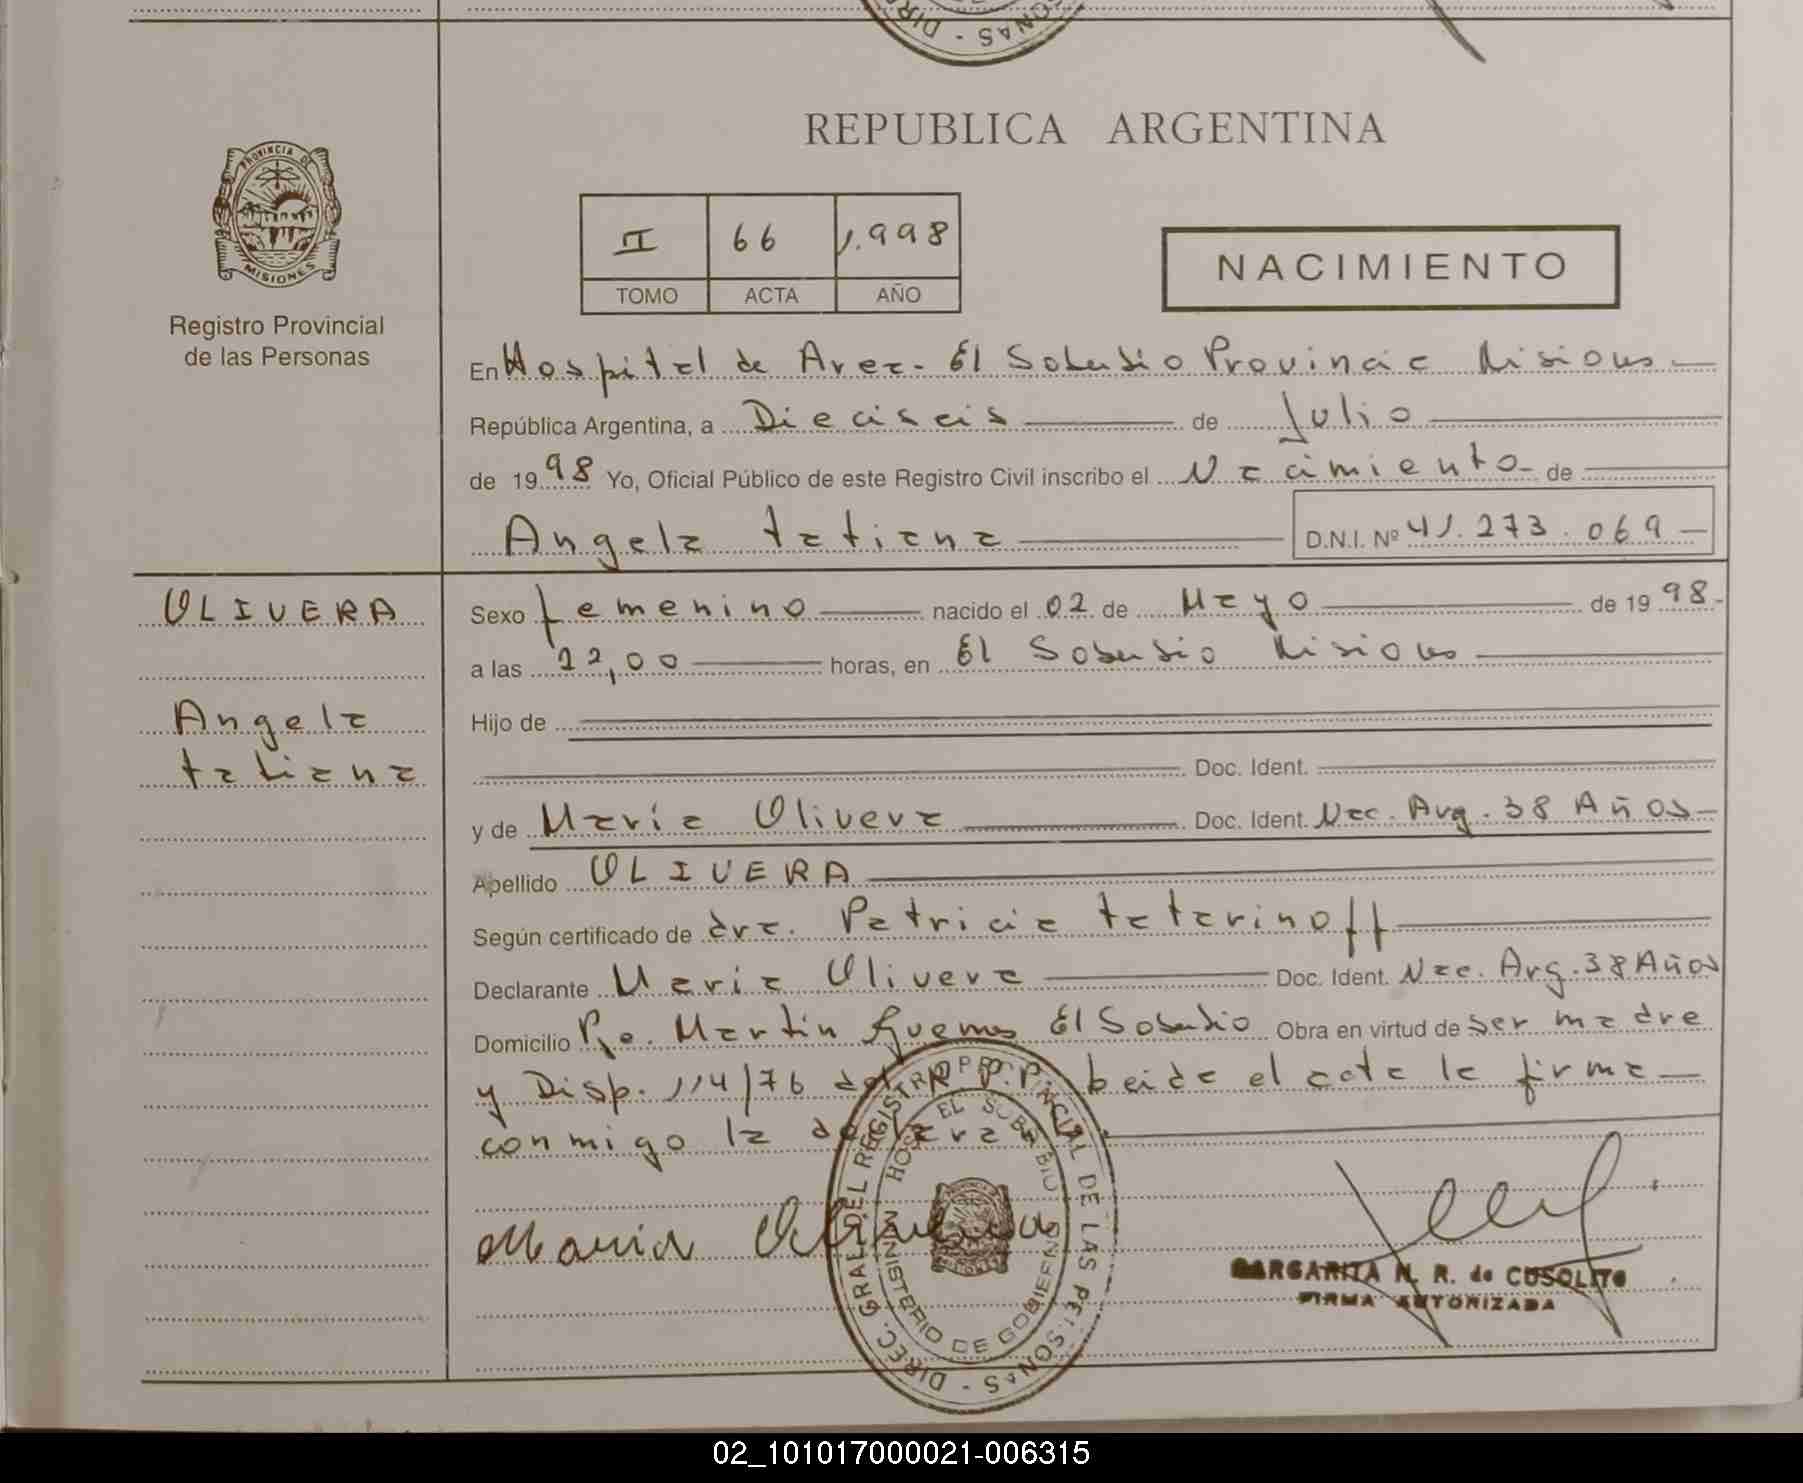 DIREC. - PERSONAS
REPUBLICA ARGENTINA
PROVINCIA DE
MISIONES
Registro Provincial
de las Personas
II 66 1.998
TOMO ACTA AÑO
NACIMIENTO
En Hospital de Area - El Soberbio Provincia Misiones
República Argentina, a Dieciseis de Julio
de 1998 Yo, Oficial Público de este Registro Civil inscribo el Nacimiento de
Angela tatiana D.N.I. Nº 41.273.069
OLIVERA
Angela
tatiana
Sexo femenino nacido el 02 de Mayo de 1998
a las 22,00 horas, en El Soberbio Misiones
Hijo de
Doc. Ident.
y de Maria Olivera Doc. Ident. Nac. Arg. 38 Años
Apellido OLIVERA
Según certificado de dra. Patricia tatarinoff
Declarante Maria Olivera Doc. Ident. Nac. Arg. 38 Años
Domicilio Pje. Martin Guemes El Soberbio Obra en virtud de ser madre
y Disp. 114/76 del R.P.P. Leida el acta la firma
conmigo la declarante
Maria Olivera
DIREC. GRAL. DEL REGISTRO PROVINCIAL DE LAS PERSONAS -
HOSP. EL SOBERBIO
MINISTERIO DE GOBIERNO
MARGARITA N. R. de CUSOLITO
FIRMA AUTORIZADA
02_101017000021-006315